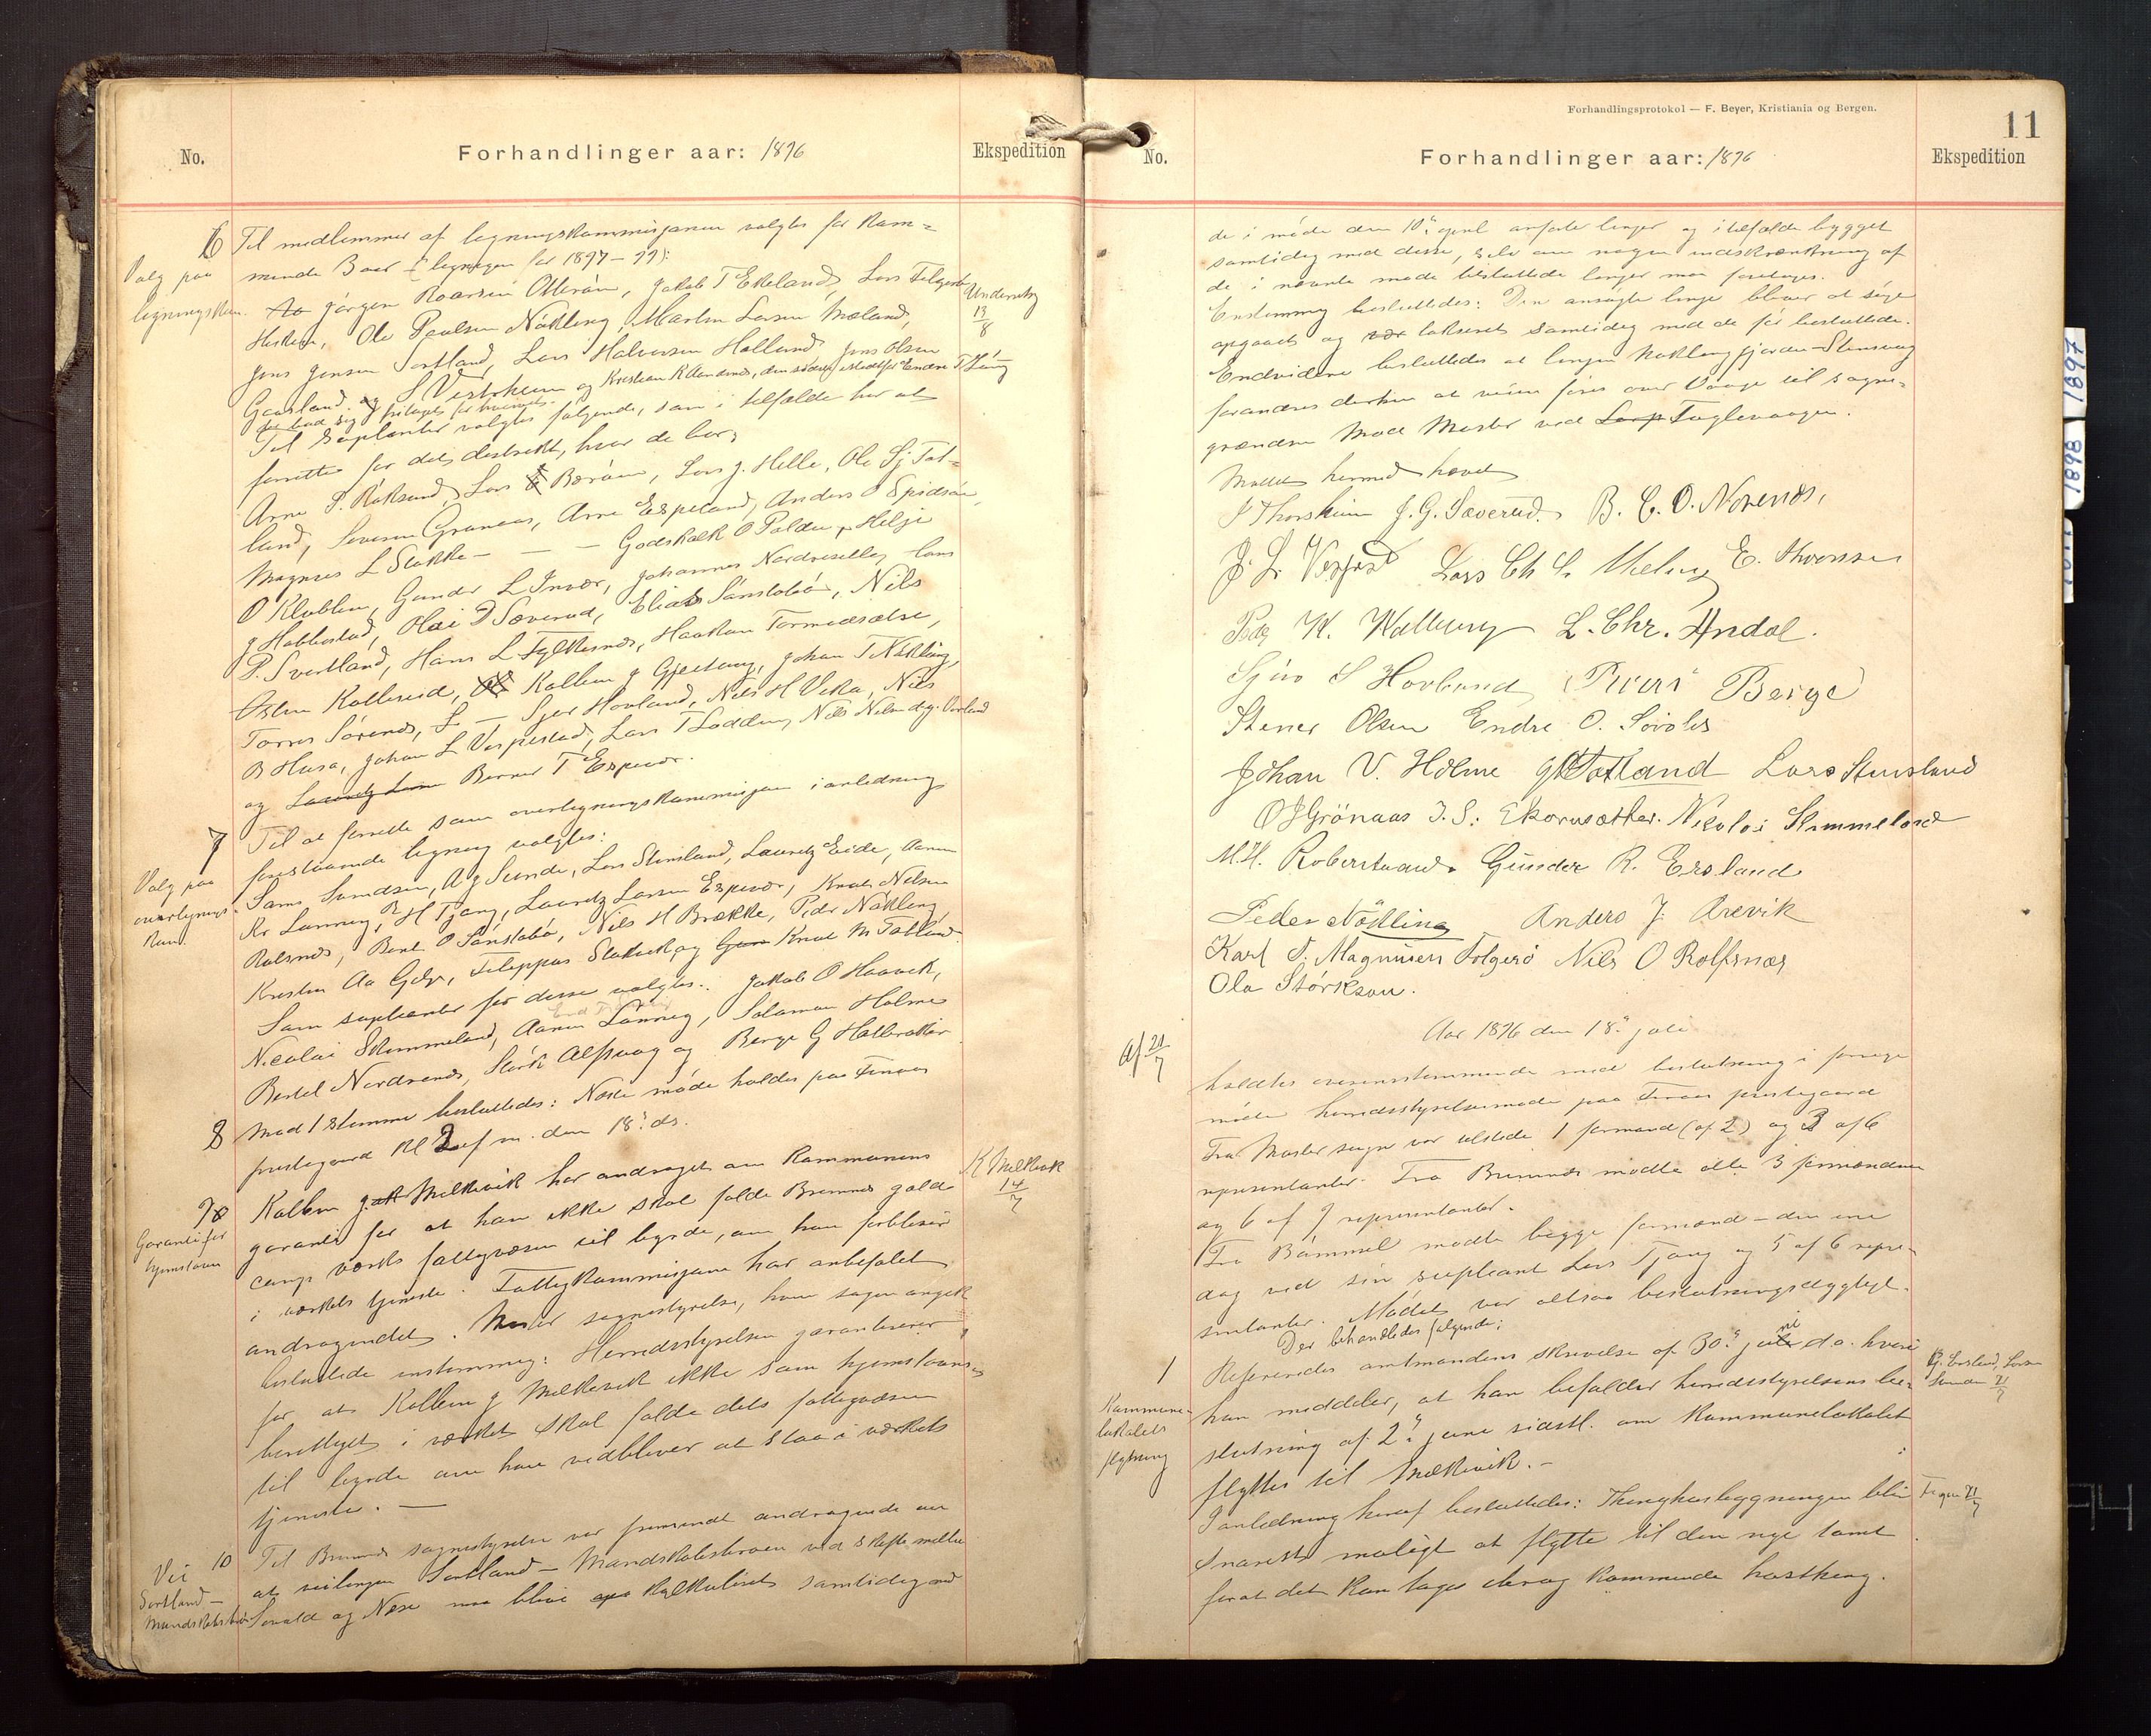 No.
Forhandlinger aar: 1896
Ekspedition
6 Til medlemmer af ligningskommisjonen valgtes for kom=
Valg paa
ligningskom.
mende 3 aar (ligningen for 1897-99):
Jørgen Roaldsen Otterøen, Jakob T Ekeland, Lars
Ole Paulsen Nökling, Martin Larsen Mæland,
Underretn
13/8
Jens Jensen Sortland, Lars Halvorsen Holland, Jens Olsen
Gaasland og S Vestvheim og Kristian R Aandnes, den sidste istedetfor Endre T
der bad sig fritaget for hvervet.
Til suplenter valgtes følgende, som i tilfælde har at
forrette for det distrekt, hvor de bor:
Arne P. Røksund, Lars Børøen, Lars J. Helle, Ole Sj Tot=
land, Severin Grønaas, Arne Espeland, Anders O Spidsøen,
Magnus L Stokke - - - Godskalk O Polden, Helje
O Klubben, Gunder L Innvær, Johannes Nordreselle, Lars
J Habbestad, Olai D Sæverud, Elias Sønstabø, Nils
P. Svortland, Hans L Fylkesnes, Haakon Tormodsæter,
Oslen Kallevik, Kolbein J Gjeitung, Johan T Nökling,
Torres Sörenes, - Sjur Hovland, Nils H Veka, Nils
B Husa, Johan L Vespestad, Lars T Lodden, Nils Nilsen
og Berner T Espevær.
7
Valg paa
overlignings-
kom.
Til at forrette som overligningskommisjon i anledning
forestaaende ligning valgtes:
Sams Simonsen, A J Sunde, Lars Stensland, Lauritz Eide, Aamun
Kr Lønning, R H Tjong, Lauritz Larsen Espevær, Knut Nilsen
Rolsnes, Bent O Sønstabø, Nils H Brække, Peder Nökling
Kristen Aa Gilje, Filippus Stokvik og Knut M Totland.
Som suplenter for disse valgtes: Jakob O Haavik,
Nicolai Skimmeland, Aamun Lønning, Salamon Holme
Bertel Nordnæs, Störk Alfsvaag og Berge G Halleraker
8 Mod 1 stemme besluttedes: Næste møde holdes paa Finnaas
prestegaard kl 2 efm. den 18. ds.
9
Garanti for
hjemstavn
Kolben J Melkevik har andraget om kommunens
garanti for at han ikke skal falde Bremnes guld-
camp. værks fattigvæsen til byrde, om han forbliver
i værkets tjeneste. Fattigkommisjonen har anbefalet
andragendet. Moster sognestyrelse, hvem sagen angik
besluttede enstemmig: Herredsstyrelsen garanterer
for at Kolben J Melkevik ikke som hjemstavns-
berettiget i værket skal falde dets fattigvæsen
til byrde om han vedbliver at staa i værkets
tjeneste. —
K Melkevik
14/7
10
Vei
Sortland—
Mandskabsbroen
Til Bremnes sognestyrelse var fremsendt andragende om
at veilinjen Sortland - Mandskabsbroen ved skifte mellem
Sorvald og Nese maa blive kalkuleret samtidig med
Forhandlingsprotokol — F. Beyer, Kristiania og Bergen.
11
No.
Forhandlinger aar: 1896
Ekspedition
de i møde den 10. april anførte linjer og i tilfælde bygget
samtidig med disse, selv om nogen indskrænkning af
de i nævnte møde besluttede linjer maa foretages.
Enstemmig besluttedes: Den ansøgte linje bliver at søge
opgaaet og taksert samtidig med de før besluttede.
Endvidere besluttedes at linjen Nøklingfjorden-Stensvaag
forandres derhen at veien føres over Vaage til sogne=
grændsen mod Moster ved Fuglevaagen.
Mødet hermed hævet
P Thorsheim J. G. Sæverud. B. C. O. Norenes,
J. L. Vespest Lars Ch L. Meling E. Thorensen
Peder K. Wallevaag L. Chr. Andal.
Sjur S Hovland Peder Berge
Stener Olsen Endre O. Siovold
Johan V. Holme G Totland Lars Stensland
O J Grönaas I. S. Ekornsæther. Nicolai Skimmeland
M. H. Roberstaand. Gunder R. Ersland
Peder Nökling Anders J. Arevik
Karl T. Magnusen Folgerö Nils O Rolfsnæs
Ola Störkson.
Aar 1896 den 18. juli
Af 21/7
holdtes overensstemmende med beslutning i forrige
møde herredsstyrelsesmøde paa Finaas prestegaard
Fra Moster sogn var tilstede 1 formand (af 2) og 3 af 6
representanter. Fra Bremnes mødte alle 3 formændene
og 6 af 9 representanter.
Fra Bømmel mødte begge formænd - den ene
dog ved sin supleant Lars Tjong og 5 af 6 repre-
sentanter. Mødet var altsaa beslutningsdygtigt.
Der behandledes følgende:
1
Kommune-
lokalets
flytning
Refereredes amtmandens skrivelse af 30. juni d.a. hvori
han meddeler, at han befalder herredsstyrelsens be=
slutning af 2. juni sidstl. om kommunelokalet
flyttes til Mælkevik. -
I anledning heraf besluttedes: Thinghusbygningen blir
snarest muligt at flytte til den nye tomt
forat det kan tages i brug kommende høstthing.
G. Ersland, Lars
Sunde 21/7
21/7